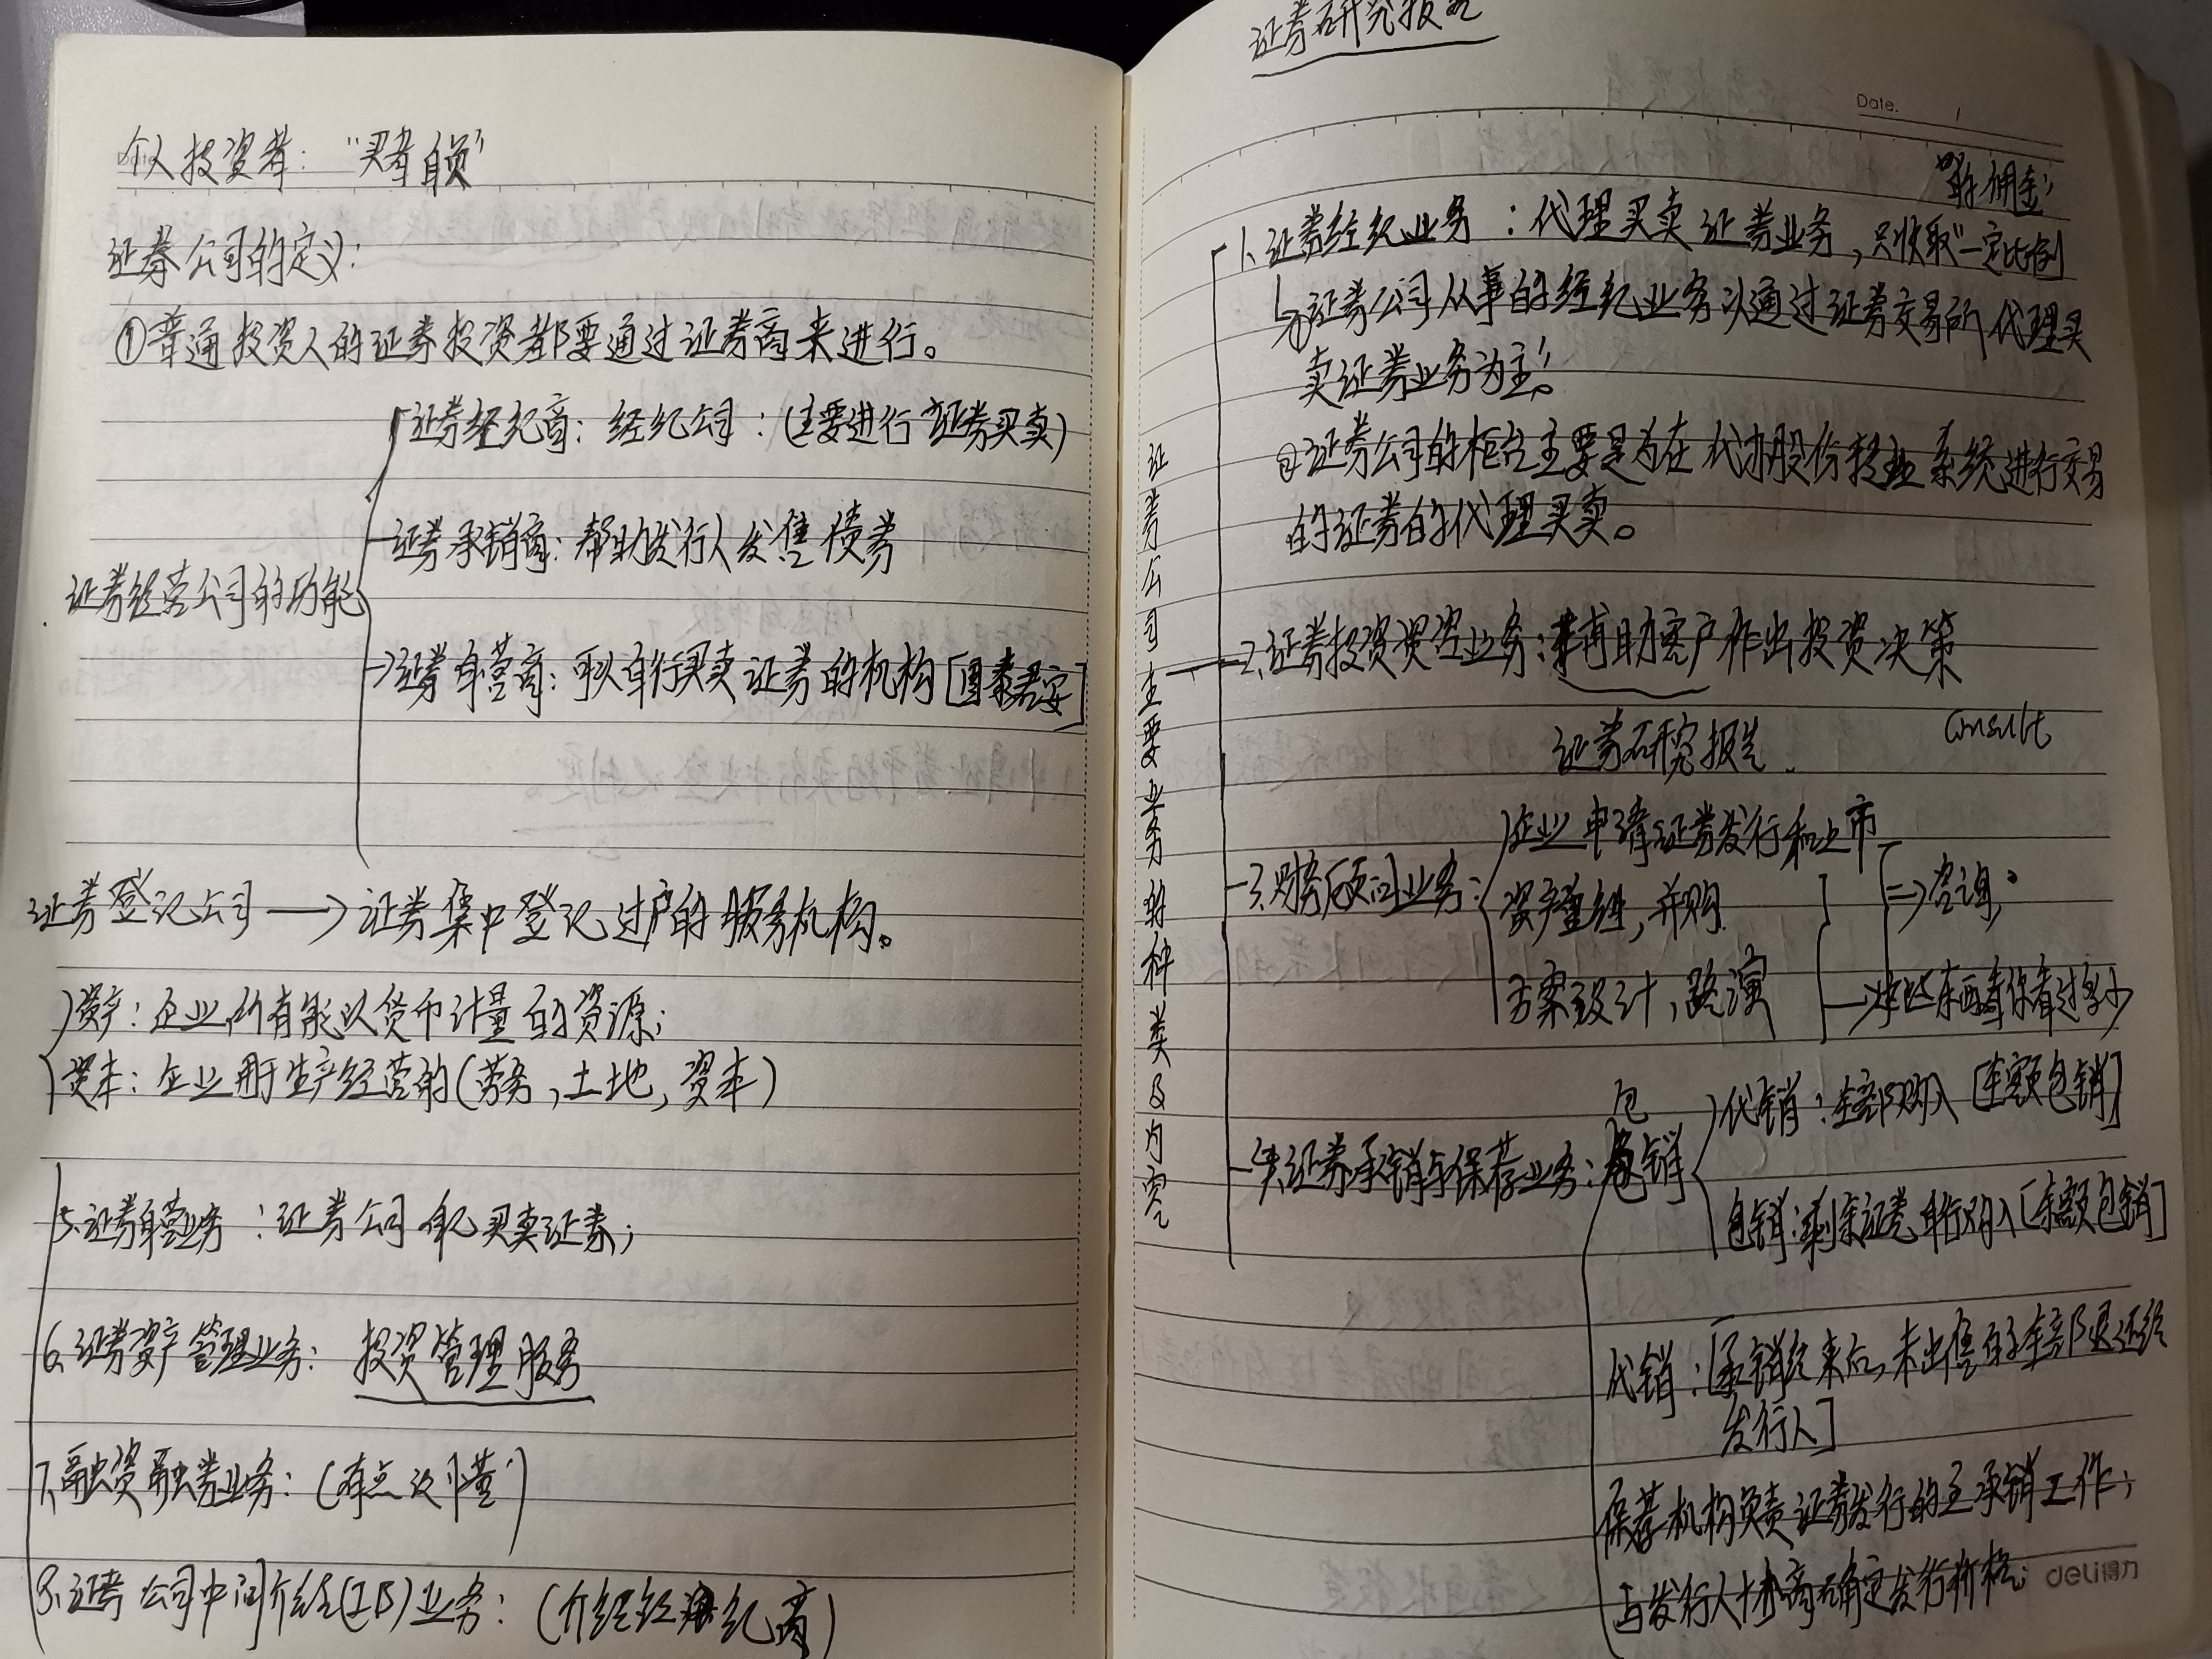 个人投资者：“买者自负”
证券公司的定义：
①普通投资人的证券投资者都要通过证券商来进行。
证券经纪商：经纪公司：(主要进行证券买卖)
证券承销商：帮助发行人发售债券
证券经营公司的功能
证券自营商：可以自行买卖证券的机构[国泰君安]
证券登记公司→证券集中登记过户的服务机构。
资产：企业所有能以货币计量的资源；
资本：企业用于生产经营的(劳务,土地,资本)
5.证券自营业务：证券公司自己买卖证券；
6.证券资产管理业务：投资管理服务
7.融资融券业务：(有点没懂)
8.证券公司中间介绍(IB)业务：(介绍经纪商)
证券研究报告
Date.
证券公司主要业务的种类及内容
的佣金”
1.证券经纪业务：代理买卖证券业务,只收取“一定比例
①证券公司从事的经纪业务以通过证券交易所代理买
卖证券业务为主。
②证券公司的柜台主要是为在代办股份转让系统进行交易
的证券的代理买卖。
2.证券投资咨询业务：辅助客户作出投资决策
证券研究报告.
Consult
企业申请证券发行和上市
3.财务顾问业务：资产重组,并购 ⇒咨询；
方案设计,路演 →这些东西看你看过多少
包
代销：全部购入[全额包销]
4.证券承销与保荐业务：包销
包销：剩余证券自行购入[余额包销]
代销：[承销结束后,未出售的全部退还给
发行人]
保荐机构负责证券发行的主承销工作；
与发行人协商确定发行价格；
deli得力